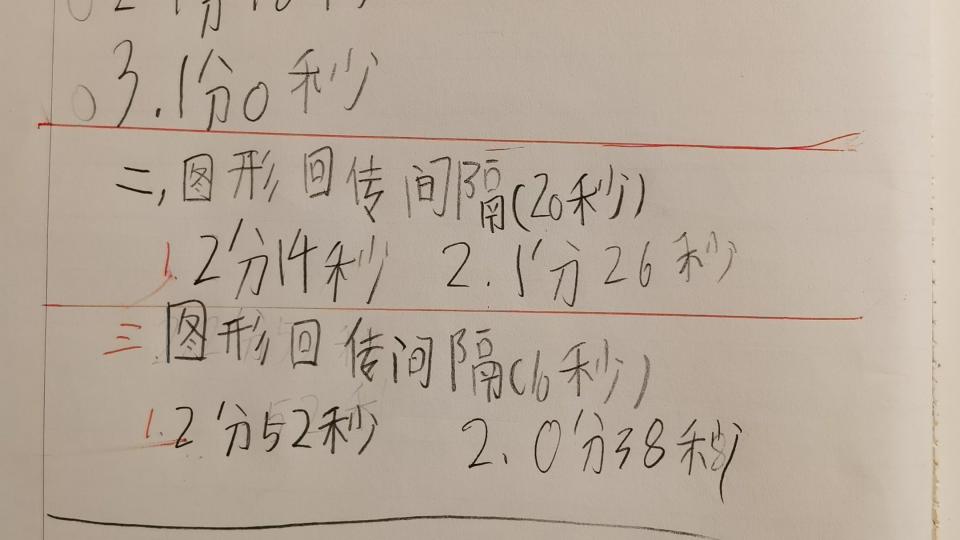 3.1分0秒
二,图形回传间隔(20秒)
1.2分14秒 2.1分26秒
三.图形回传间隔(10秒)
1.2分52秒 2.0分38秒